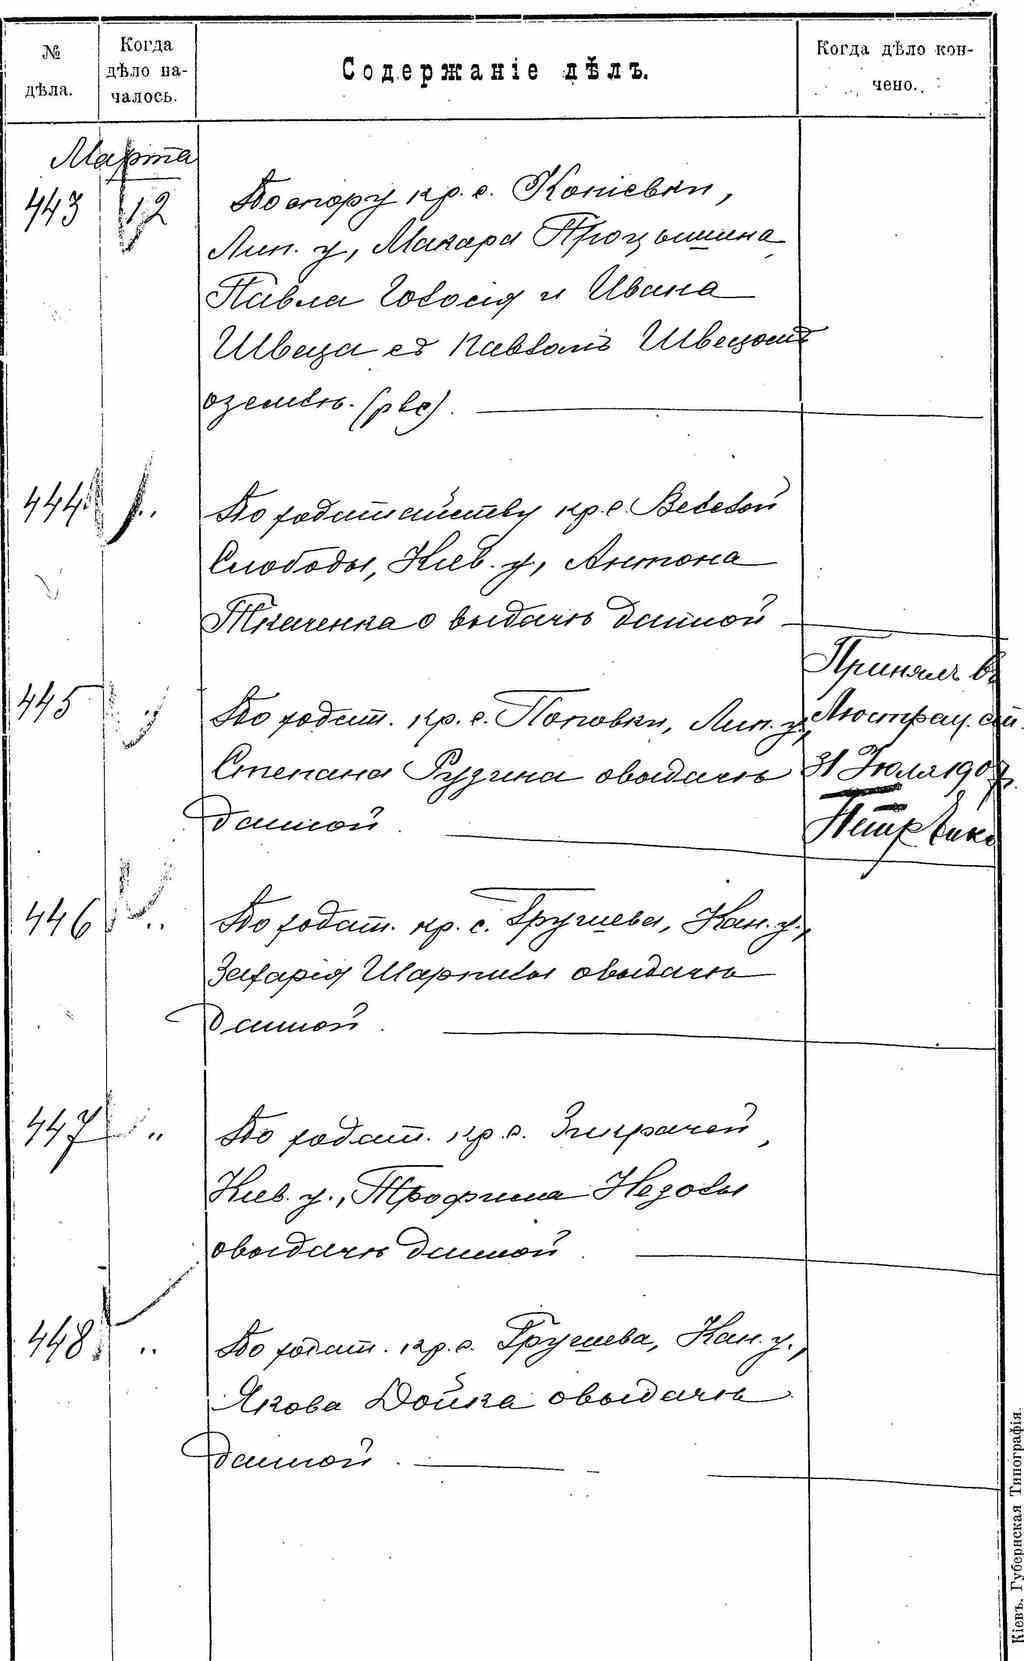 № дѣла.
Когда дѣло на-
чалось.
Содержаніе дѣлъ.
Когда дѣло кон-
чено.
Марта
443 12 По спору кр. с. Копіевки,
Лип. у., Макара Процышина,
Павла Говосія и Ивана
Швеца съ Павломъ Швецомъ
о землѣ.
444 „ По ходатайству кр. с. Веселой
Слободы, Кіев. у., Антона
Ткаченка о выдачѣ данной
445 „ По ходат. кр. с. Поповки, Лип. у.,
Степана Рузина о выдачѣ
данной.
Принялъ въ
Люстрац. от.
31 Іюля 1907 г.
446 „ По ходат. кр. с. Грушева, Кан. у.,
Захарія Шарпилы о выдачѣ
данной.
447 „ По ходат. кр. с.
Кіев. у., Трофима
о выдачѣ данной.
448 „ По ходат. кр. с. Грушева, Кан. у.,
Якова Дойка о выдачѣ
данной.
Кіевъ, Губернская Типографія.